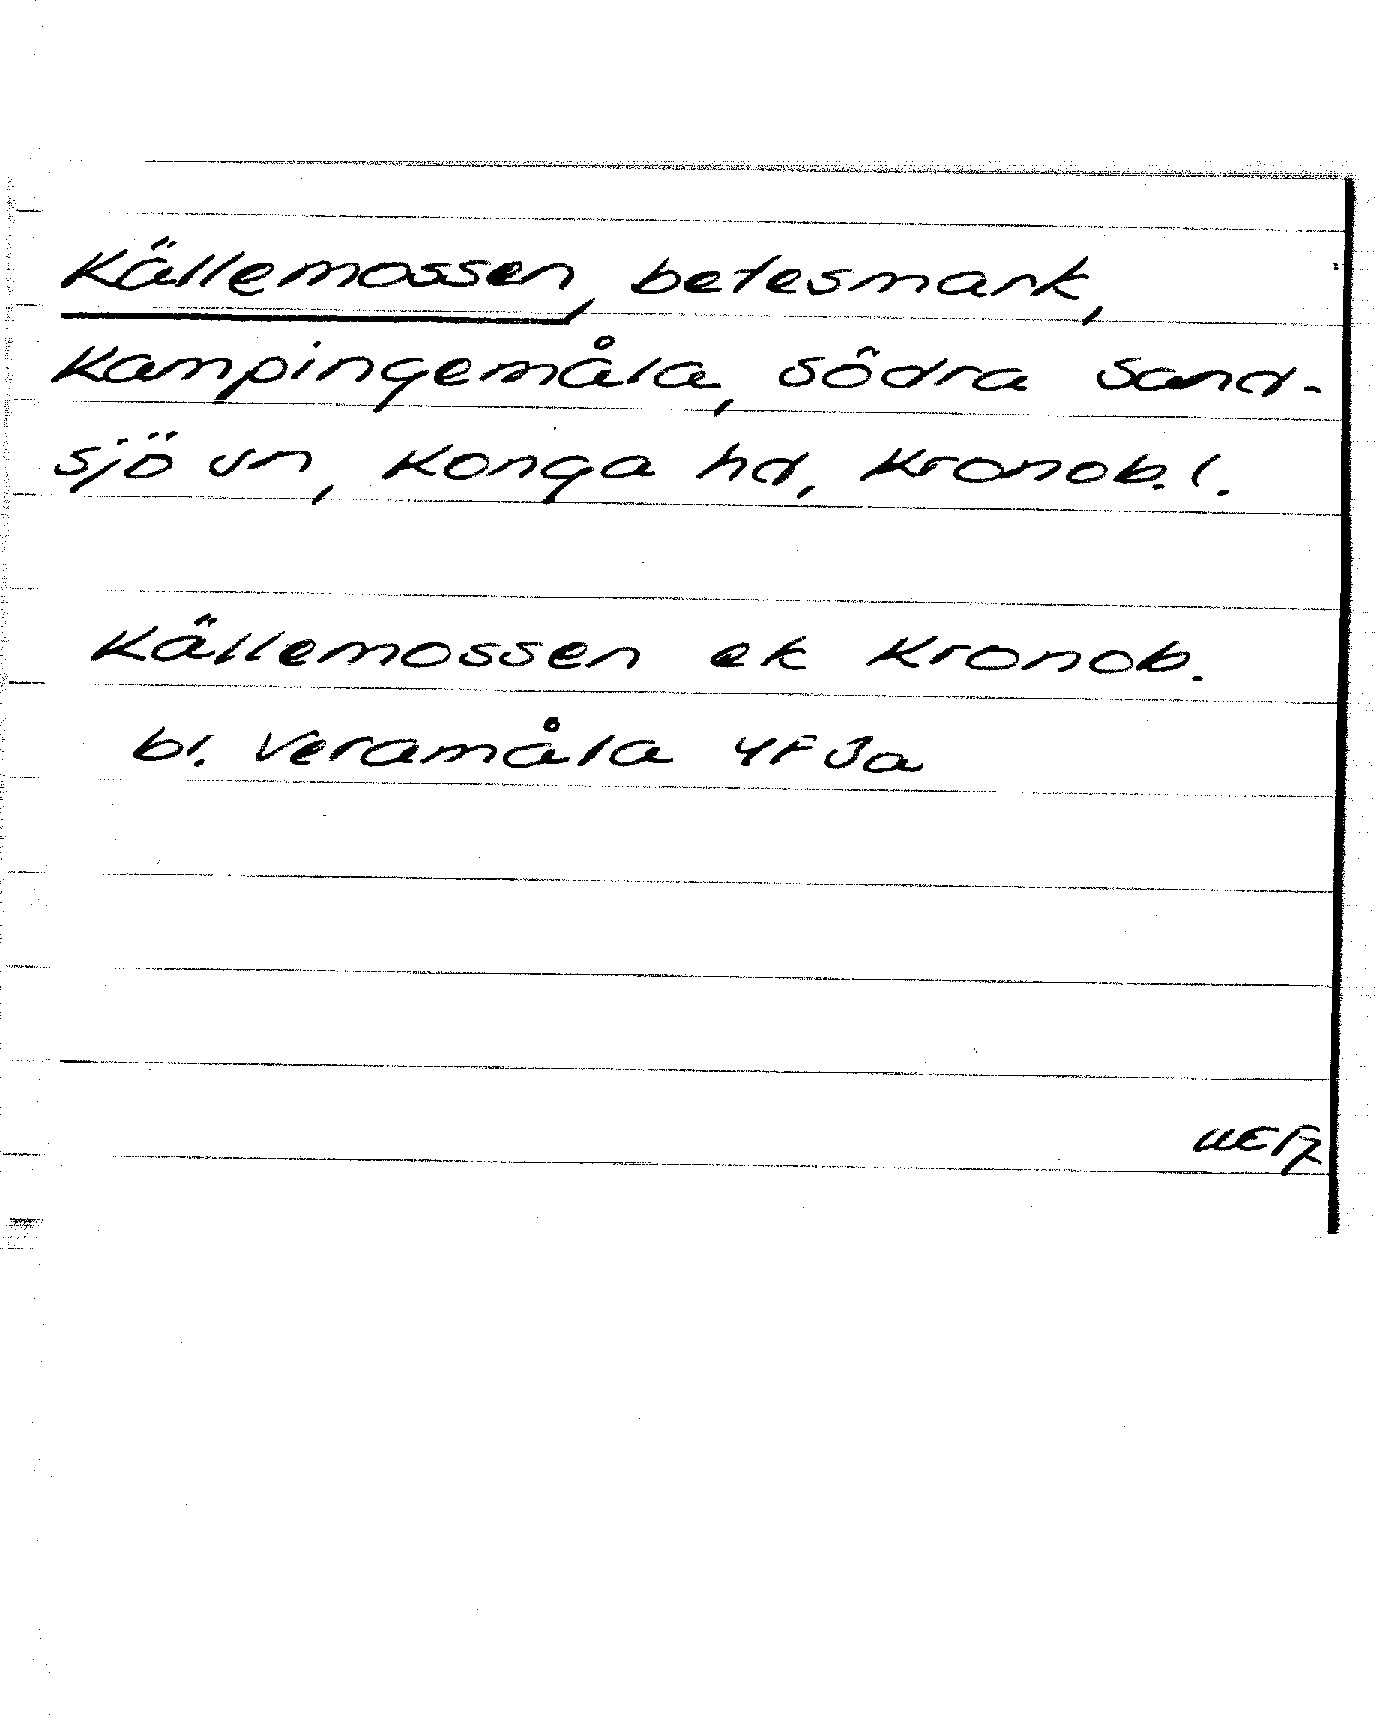 Källemossen, betesmark,
Kampingemåla, södra Sand-
sjö sn, Konga hd, Kronob. l.
Källemossen ek Kronob.
bl. Veramåla 4F 3a